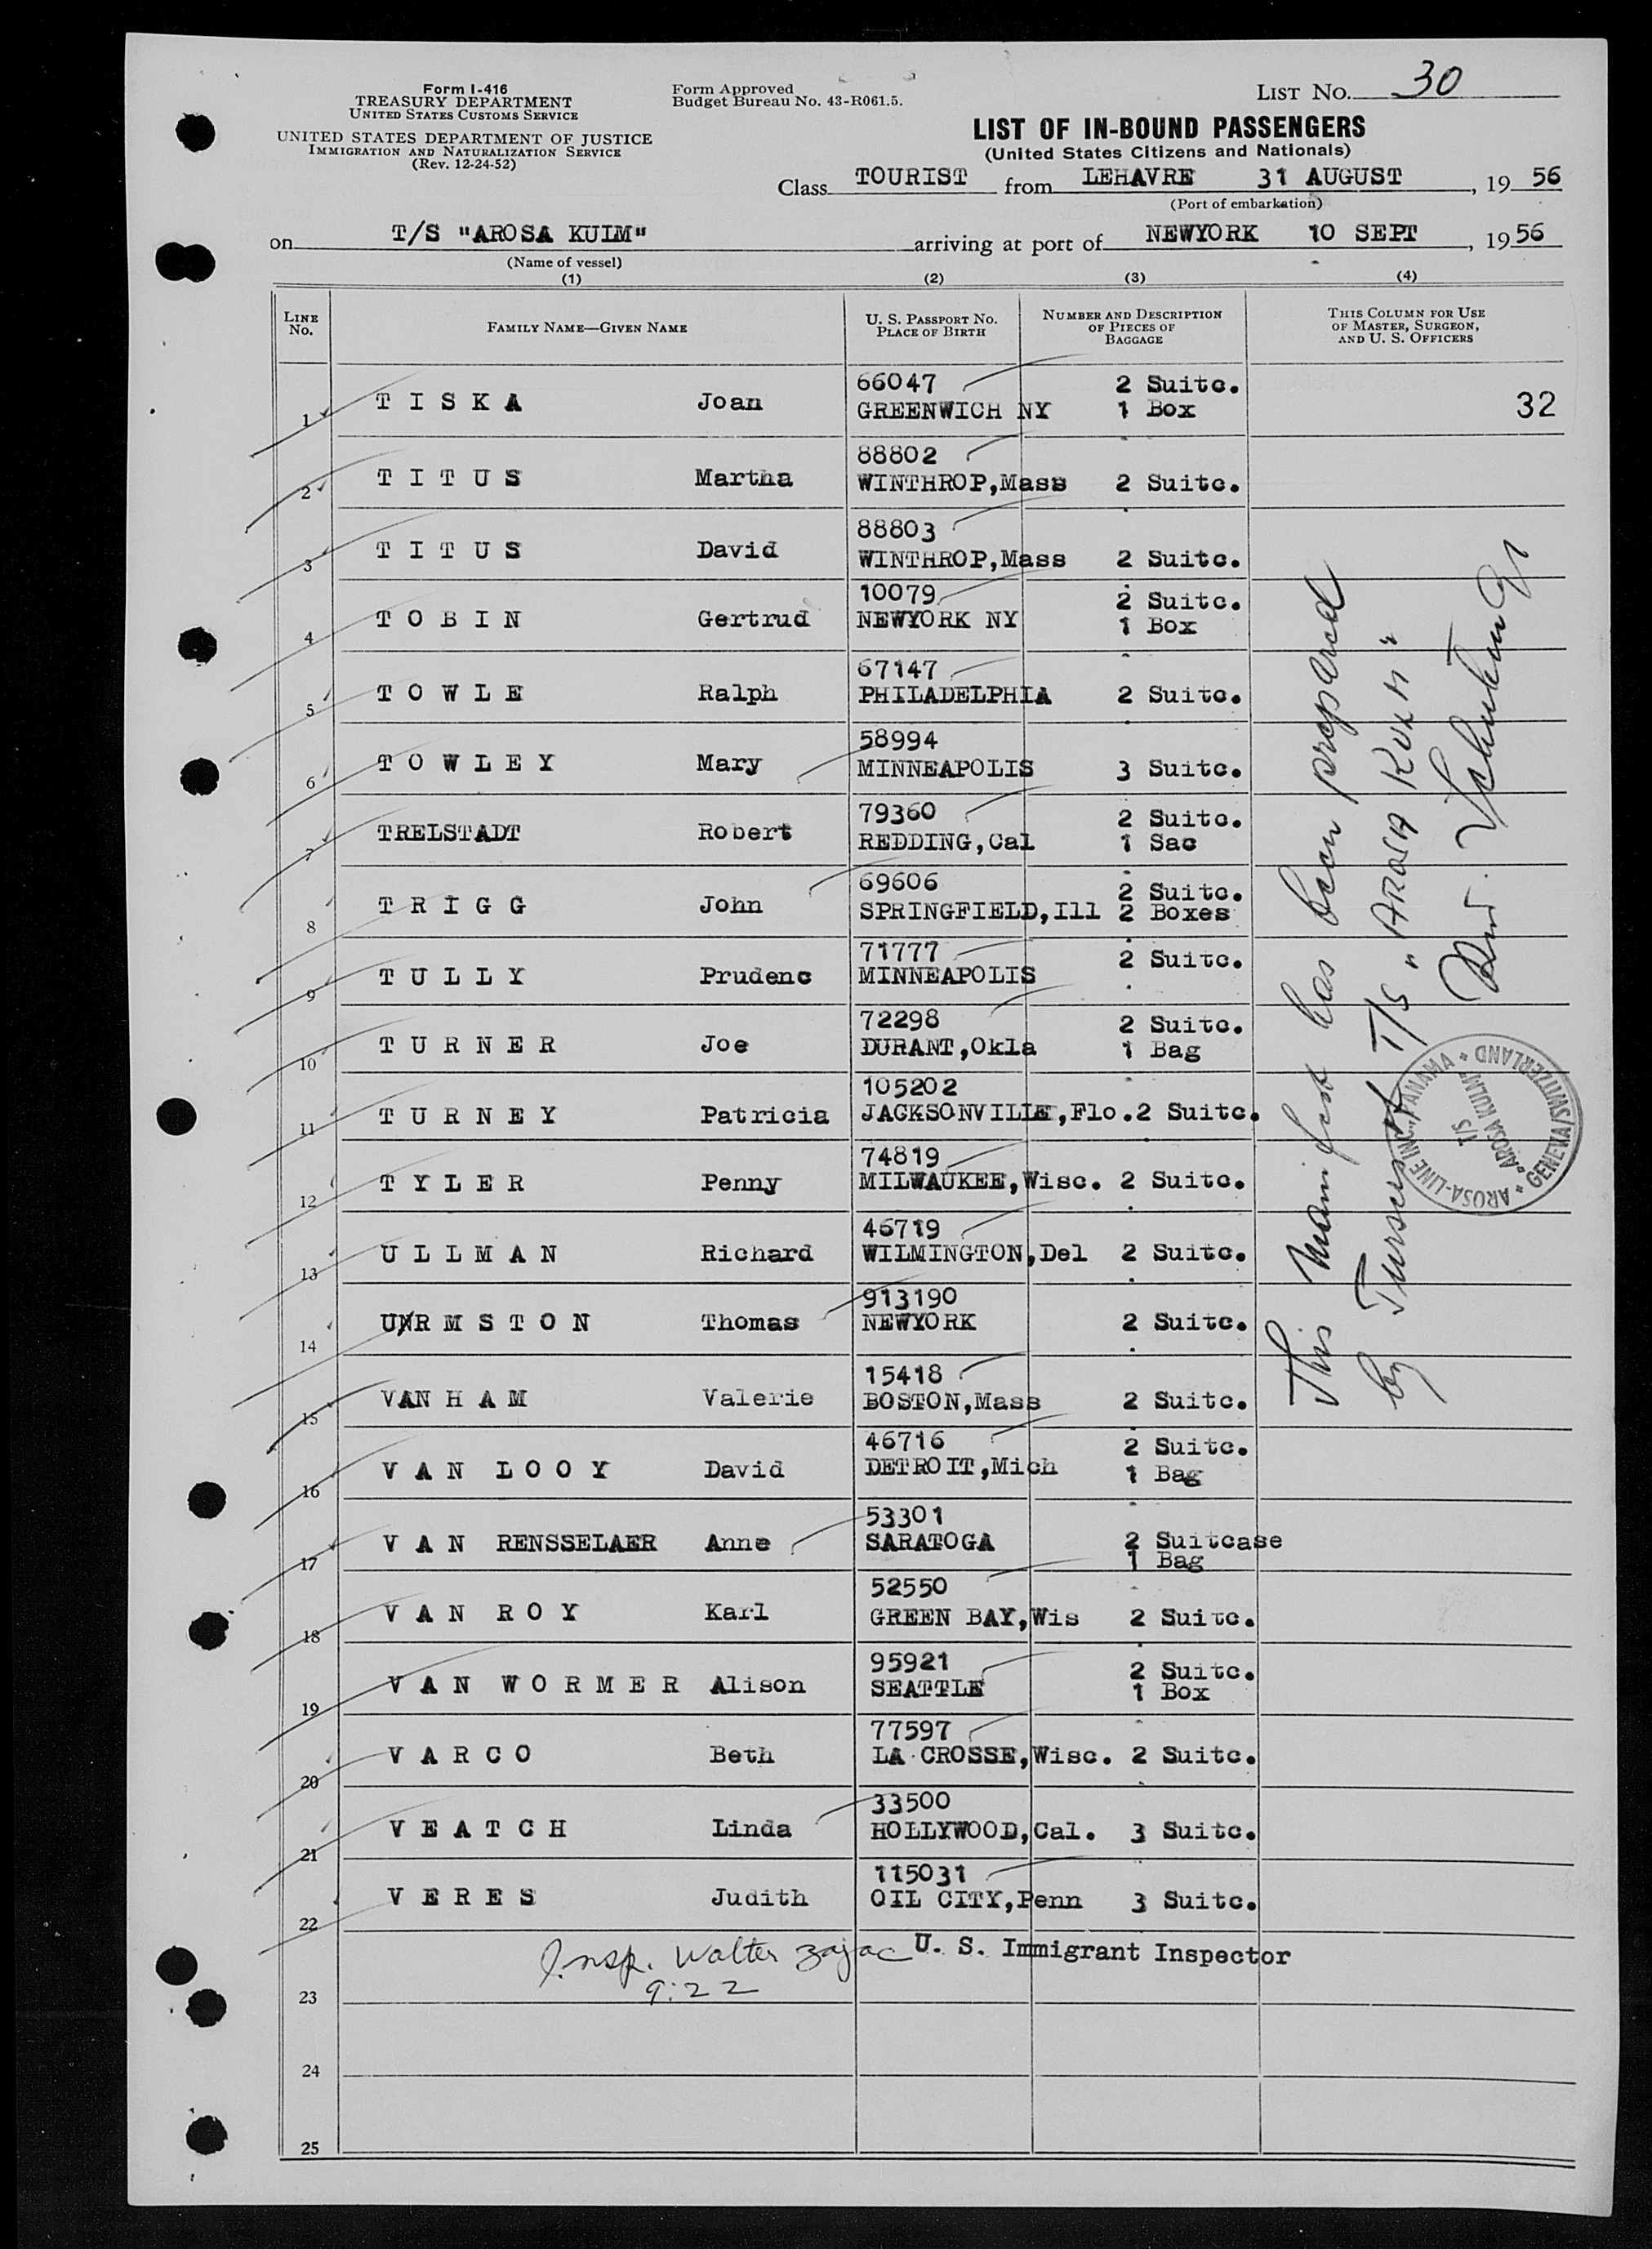 Form I-416
TREASURY DEPARTMENT
UNITED STATES CUSTOMS SERVICE
UNITED STATES DEPARTMENT OF JUSTICE
IMMIGRATION AND NATURALIZATION SERVICE
(Rev. 12-24-52)
Form Approved
Budget Bureau No. 43-R061.5.
LIST NO. 30
LIST OF IN-BOUND PASSENGERS
(United States Citizens and Nationals)
Class TOURIST from LEHAVRE 31 AUGUST, 19 56
(Port of embarkation)
on T/S "AROSA KULM" arriving at port of NEWYORK 10 SEPT, 19 56
(Name of vessel)
(1) (2) (3) (4)
LINE NO.
FAMILY NAME—GIVEN NAME
U. S. PASSPORT NO.
PLACE OF BIRTH
NUMBER AND DESCRIPTION
OF PIECES OF
BAGGAGE
THIS COLUMN FOR USE
OF MASTER, SURGEON,
AND U. S. OFFICERS
66047 2 Suitc.
1 TISKA Joan GREENWICH NY 1 Box 32
88802
2 TITUS Martha WINTHROP,Mass 2 Suitc.
88803
3 TITUS David WINTHROP,Mass 2 Suitc.
10079 2 Suitc.
4 TOBIN Gertrud NEWYORK NY 1 Box
67147
5 TOWLE Ralph PHILADELPHIA 2 Suitc.
58994
6 TOWLEY Mary MINNEAPOLIS 3 Suitc.
79360 2 Suitc.
7 TRELSTADT Robert REDDING,Cal 1 Sac
69606 2 Suitc.
8 TRIGG John SPRINGFIELD,Ill 2 Boxes
71777 2 Suitc.
9 TULLY Prudenc MINNEAPOLIS
72298 2 Suitc.
10 TURNER Joe DURANT,Okla 1 Bag
105202
11 TURNEY Patricia JACKSONVILLE,Flo. 2 Suitc.
74819
12 TYLER Penny MILWAUKEE,Wisc. 2 Suitc.
46719
13 ULLMAN Richard WILMINGTON,Del 2 Suitc.
913190
14 URMSTON Thomas NEWYORK 2 Suitc.
15418
15 VAN HAM Valerie BOSTON,Mass 2 Suitc.
46716 2 Suitc.
16 VAN LOOY David DETROIT,Mich 1 Bag
53301 2 Suitcase
17 VAN RENSSELAER Anne SARATOGA 1 Bag
52550
18 VAN ROY Karl GREEN BAY,Wis 2 Suitc.
95921 2 Suitc.
19 VAN WORMER Alison SEATTLE 1 Box
77597
20 VARCO Beth LA CROSSE,Wisc. 2 Suitc.
33500
21 VEATCH Linda HOLLYWOOD,Cal. 3 Suitc.
115031
22 VERES Judith OIL CITY,Penn 3 Suitc.
Insp. Walter Zajac U. S. Immigrant Inspector
9:22
23
24
25
This Manifest has been prepared
by Purser of T/S "AROSA KULM"
AROSA-LINE INC. PANAMA * GENEVA/SWITZERLAND *
T/S
"AROSA KULM"